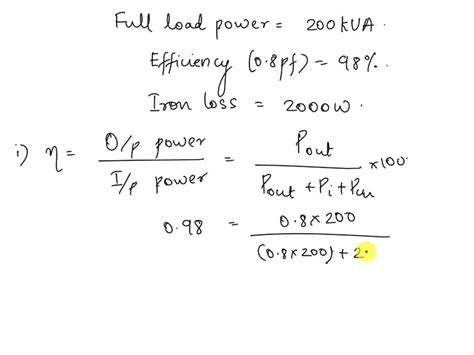 Full load power = 200kVA.
Efficiency (0.8pf) = 98%.
Iron loss = 2000w.
i) η = O/p power / I/p power = Pout / Pout + Pi + Pcu ×100.
0.98 = 0.8×200 / (0.8×200) + 2